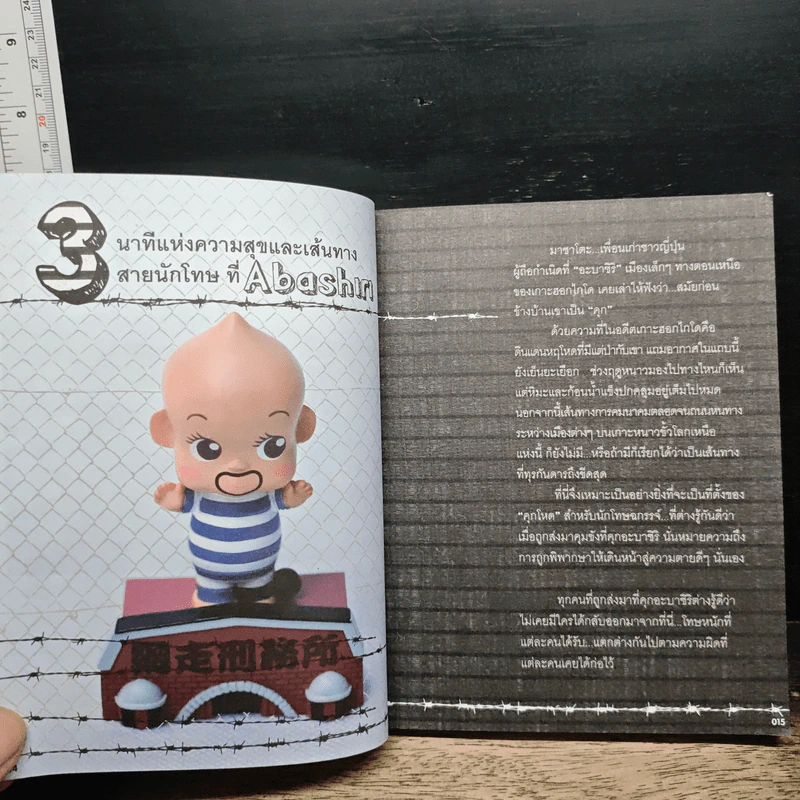 3
นาทีแห่งความสุขและเส้นทาง
สายนักโทษ ที่ Abashiri
網走刑務所
มาซาโตะ...เพื่อนเก่าชาวญี่ปุ่น
ผู้ถือกำเนิดที่ “อะบาชิริ” เมืองเล็กๆ ทางตอนเหนือ
ของเกาะฮอกไกโด เคยเล่าให้ฟังว่า...สมัยก่อน
ข้างบ้านเขาเป็น “คุก”
ด้วยความที่ในอดีตเกาะฮอกไกโดคือ
ดินแดนหฤโหดที่มีแต่ป่ากับเขา แถมอากาศในแถบนี้
ยังเย็นยะเยือก ช่วงฤดูหนาวมองไปทางไหนก็เห็น
แต่หิมะและก้อนน้ำแข็งปกคลุมอยู่เต็มไปหมด
นอกจากนี้เส้นทางการคมนาคมตลอดจนถนนหนทาง
ระหว่างเมืองต่างๆ บนเกาะหนาวขั้วโลกเหนือ
แห่งนี้ ก็ยังไม่มี...หรือถ้ามีก็เรียกได้ว่าเป็นเส้นทาง
ที่ทุรกันดารถึงขีดสุด
ที่นี่จึงเหมาะเป็นอย่างยิ่งที่จะเป็นที่ตั้งของ
“คุกโหด” สำหรับนักโทษฉกรรจ์...ที่ต่างรู้กันดีว่า
เมื่อถูกส่งมาคุมขังที่คุกอะบาชิริ นั่นหมายความถึง
การถูกพิพากษาให้เดินหน้าสู่ความตายดีๆ นั่นเอง
ทุกคนที่ถูกส่งมาที่คุกอะบาชิริต่างรู้ดีว่า
ไม่เคยมีใครได้กลับออกมาจากที่นี่...โทษหนักที่
แต่ละคนได้รับ...แตกต่างกันไปตามความผิดที่
แต่ละคนเคยได้ก่อไว้
015
9
8
24
23
22
21
20
19
18